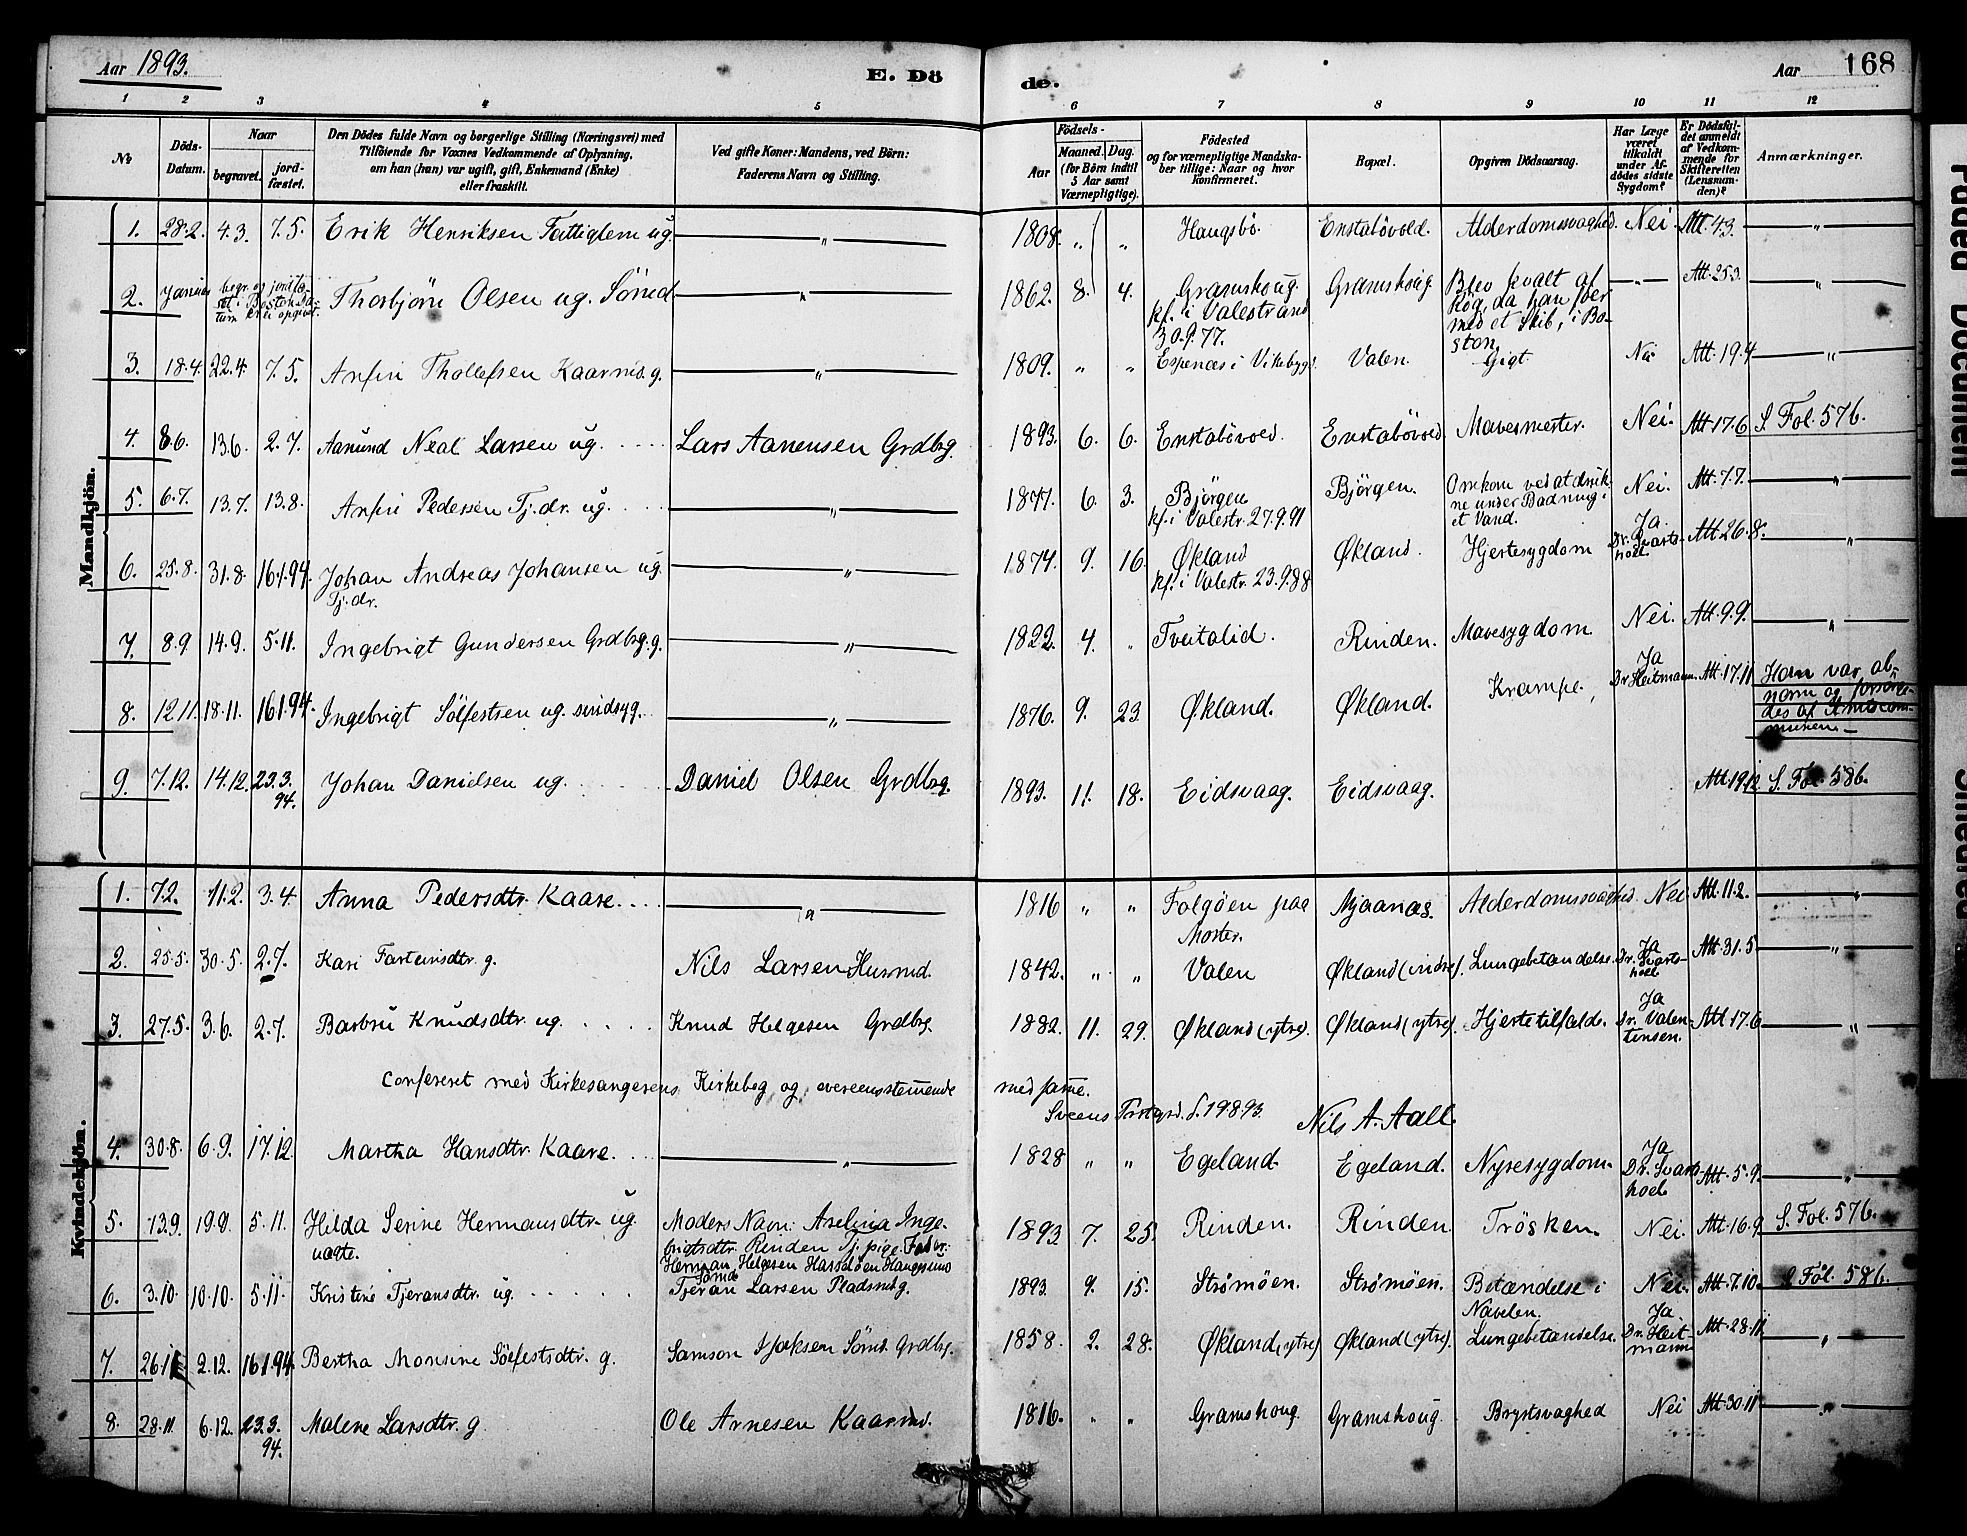 Aar 1893.
E. Dö
de.
Aar
168
1 2 3 4 5 6 7 8 9 10 11 12
No
Döds-
Datum.
Naar
begravet.
jord-
fæstet.
Den Dödes fulde Navn og borgerlige Stilling (Næringsvei) med
Tilföiende for Voxnes Vedkommende af Oplysning,
om han (hun) var ugift, gift, Enkemand (Enke)
eller fraskilt.
Ved gifte Koner: Mandens, ved Börn:
Faderens Navn og Stilling.
Födsels-
Aar
Maaned. Dag.
(for Børn indtil
5 Aar samt
Værnepligtige).
Födested
og for værnepligtige Mandska-
ber tillige: Naar og hvor
konfirmeret.
Bopæl.
Opgiven Dödsaarsag.
Har Læge
været
tilkaldt
under Af-
dödes sidste
Sygdom?
Er Dödsfal-
det anmeldt
af Vedkom-
mende for
Skifteretten
(Lensman-
den)?
Anmærkninger.
Mandkjön.
1. 28.2. 4.3. 7.5. Erik Henriksen Fattiglem ug. — " — 1808. " " Haugsbö Enstabövold. Alderdomssvaghed. Nei. Att. 4.3. — " —
2. Januar begr. og jordfæ-
set i Boston Da-
tum ei opgivet. Thorbjörn Olsen ug. Sömd — " — 1862. 8. 4. Gramshoug.
kf. i Valestrand
30.9.77. Gramshoug. Blev kvalt af
Røg, da han foer
med et Skib, i Bo-
ston. — " — Att. 25.3. — " —
3. 18.4. 22.4. 7.5. Anfin Thollefsen Kaarmd. g. — " — 1809. " " Espenæs i Vikebygd. Valen. Gigt Nei Att. 19.4 — " —
4. 8.6. 13.6. 2.7. Aamund Neal Larsen ug. Lars Aanensen Grdbrg. 1893. 6. 6. Enstabövold. Enstabövold. Mavesmerter. Nei. Att. 17.6. S. Fol. 576.
5. 6.7. 13.7. 13.8. Anfin Pedersen Tj.dr. ug. — " — 1877. 6. 3. Bjørgen
kf. i Valestr. 27.9.91 Bjørgen. Omkom ved at druk-
ne under Badning i
et Vand. Nei. Att. 7.7. — " —
6. 25.8. 31.8. 16.1.94. Johan Andreas Johansen ug.
Tj.dr. — " — 1874. 9. 16. Økland
kf. i Valestr. 23.9.88 Økland. Hjertesygdom Ja.
Dr. Svarts-
hoel Att. 26.8. — " —
7. 8.9 14.9. 5.11. Ingebrigt Gundersen Grdbrg. g. — " — 1822. 4. " Tveitalid. Rinden. Mavesygdom. Nei. Att. 9.9. — " —
8. 12.11. 18.11. 16.1.94. Ingebrigt Sölfestsen ug. sindsyg. — " — 1876. 9. 23. Økland. Økland. Krampe. Ja
Dr. Heitmann. Att. 17.11 Han var ab-
norm og forsör-
des af Amtscom-
munen —
9. 7.12. 14.12. 23.3.
94. Johan Danielsen ug. Daniel Olsen Grdbrg. 1893. 11. 18. Eidsvaag. Eidsvaag. Att. 19.12. S. Fol. 586.
Kvindekjön.
1. 7.2. 11.2. 3.4. Anna Pedersdtr. Kaare. — " — 1816 " " Folgöen paa
Moster. Mjaanæs. Alderdomssvaghed. Nei. Att. 11.2. — " —
2. 25.5. 30.5. 2.7. Kari Farteinsdtr. g. Nils Larsen Husmd. 1842. " " Valen Økland (indre). Lungebetændelse. Ja
Dr. Svarts-
hoel Att. 31.5. — " —
3. 27.5. 3.6. 2.7. Barbru Knudsdtr. ug. Knud Helgesen Grdbrg. 1882. 11. 29. Økland (ytre). Økland (ytre). Hjertetilfælde. Ja
Dr. Valen-
tinsen. Att. 17.6 — " —
Confereret med Kirkesangerens Kirkebog og overeensstemmende med samme.
Sveens Prstgrd. d. 19.8.93. Nils A. Aall.
4. 30.8. 6.9. 17.12. Martha Hansdtr. Kaare. — " — 1828 " " Egeland. Egeland. Nyresygdom. Ja
Dr. Svarts-
hoel Att. 5.9. — " —
5. 13.9. 19.9. 5.11. Hilda Serine Hermansdtr. ug.
uægte. Moders Navn: Anelina Inge-
brigtsdtr. Rinden Tj. pige. Fader:
Herman Helgesen Hasselöen Haugesund
Sömd. 1893. 7. 25. Rinden. Rinden. Trösken. Nei. Att. 16.9. S. Fol. 576.
6. 3.10. 10.10. 5.11. Kristine Tjeransdtr. ug. Tjeran Larsen Pladsmd. g. 1893. 9. 15. Strømöen. Strømöen. Betændelse i
Navelen. Nei. Att. 7.10. S. Fol. 586.
7. 26.11 2.12. 16.1.94 Bertha Monsine Sölfestsdtr. g. Samson Isaksen Sömd. Grdbrg. 1858. 2. 28. Økland (ytre) Økland (ytre). Lungebetændelse. Ja
Dr. Heit-
mann Att. 28.11 — " —
8. 28.11. 6.12. 23.3.
94. Malene Larsdtr. g Ole Arnesen Kaarmd. 1816. " " Gramshoug. Gramshoug. Brystsvaghed Nei Att. 30.11 — " —
Faded Document